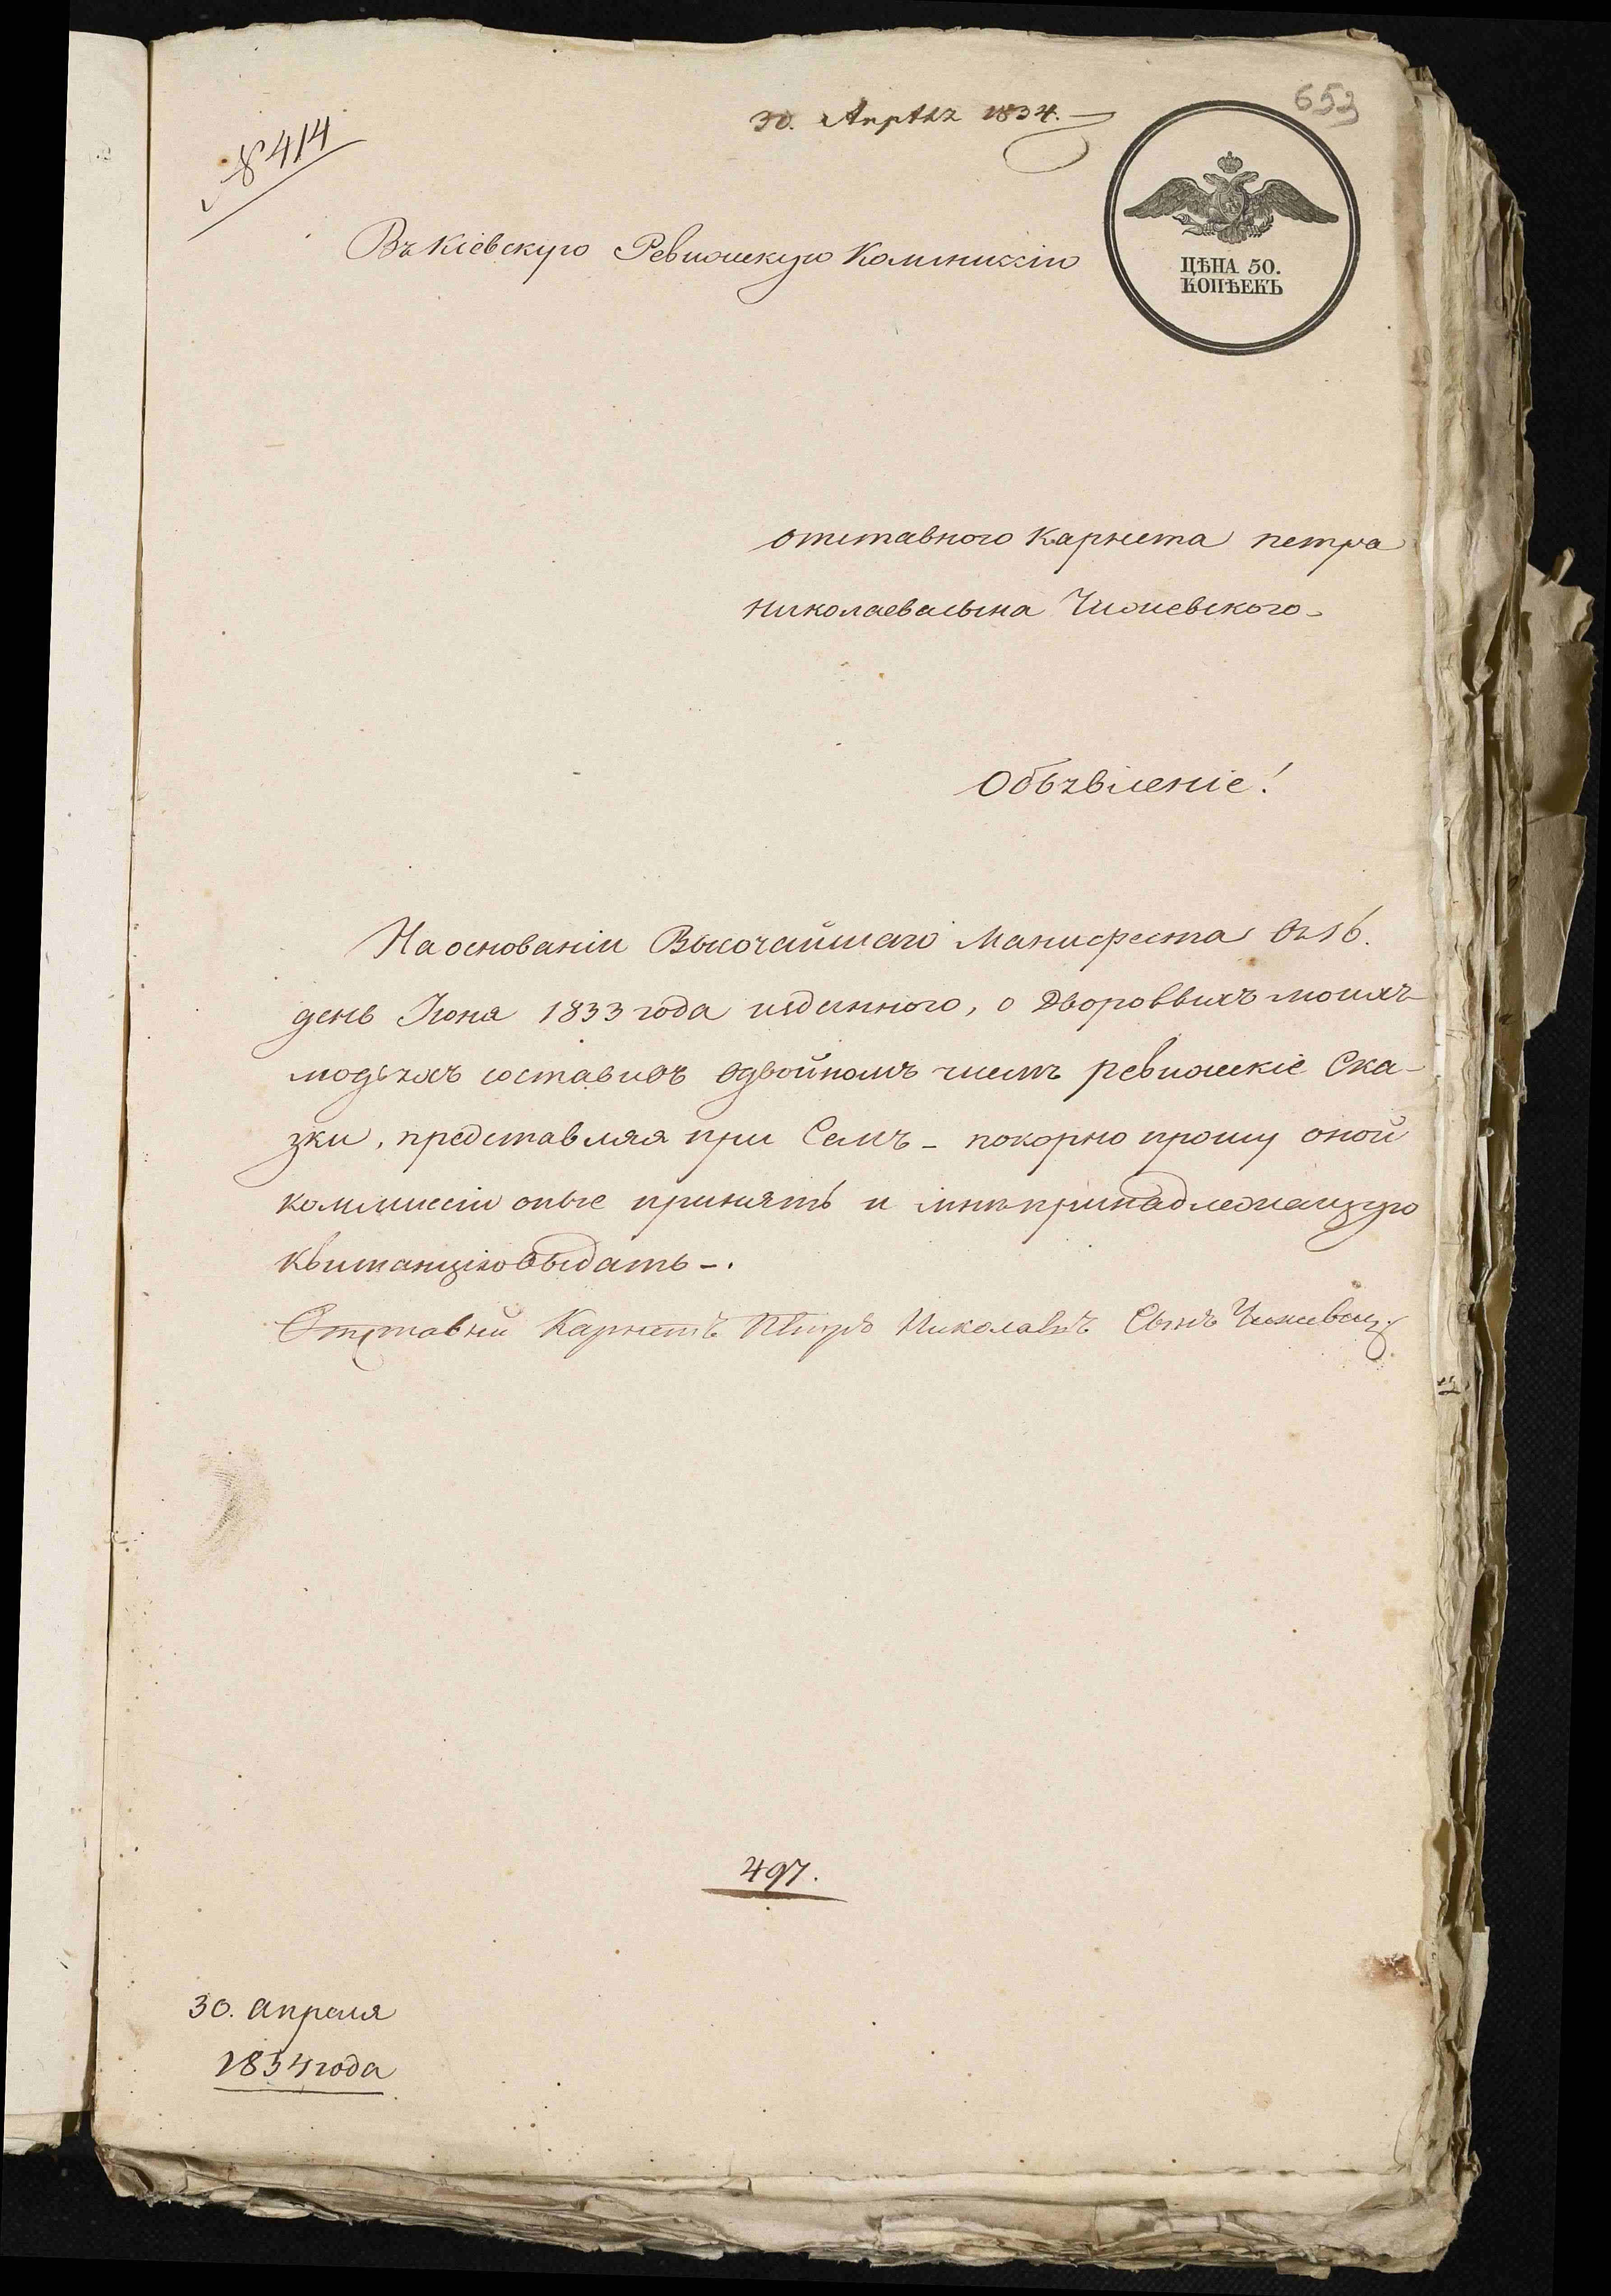 653
30. Апрѣля 1834.
№ 414
Въ Кіевскую Ревизскую Коммиссію
ЦѢНА 50.
КОПѢЕКЪ
отставного Карнета петра
Николаева сына Чижевского
Объявленіе!
На основаніи Высочайшаго Манифеста въ 16.
день Іюня 1833 года изданного, о Дворовыхъ моихъ
людяхъ составивъ вдвойномъ числѣ ревизскіе Ска-
зки, представляя при Семъ - покорно прошу оной
коммиссіи оные принять и мнѣ принадлежащую
квитанцію выдать -.
Отставни Карнетъ Петръ Николаевъ Сынъ Чижевскі
497.
30. апреля
1834 года